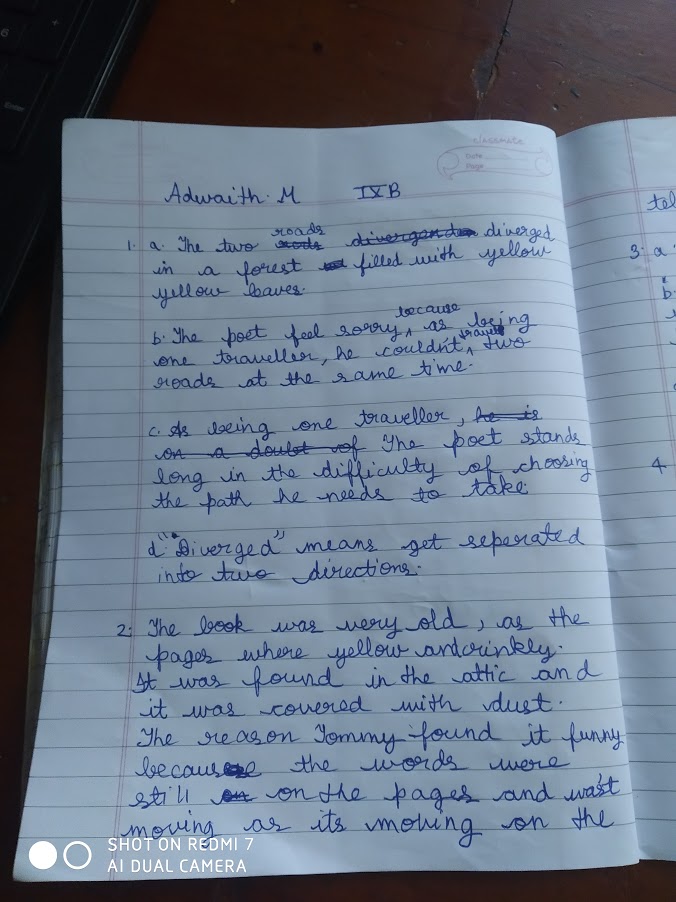 classmate
Date
Page
Adwaith. M IX B
1. a. The two roads diverged
in a forest filled with yellow
yellow leaves.
b. The poet feel sorry because as being
one traveller, he couldn't travel two
roads at the same time.
c. As being one traveller, he is
on a doubt of The poet stands
long in the difficulty of choosing
the path he needs to take.
d. "Diverged" means get seperated
into two directions.
2. The book was very old, as the
pages where yellow and crinkly.
It was found in the attic and
it was covered with dust.
The reason Tommy found it funny
because the words were
still on the pages and wast
moving as its moving on the
tel
3. a
b.
4
SHOT ON REDMI 7
AI DUAL CAMERA